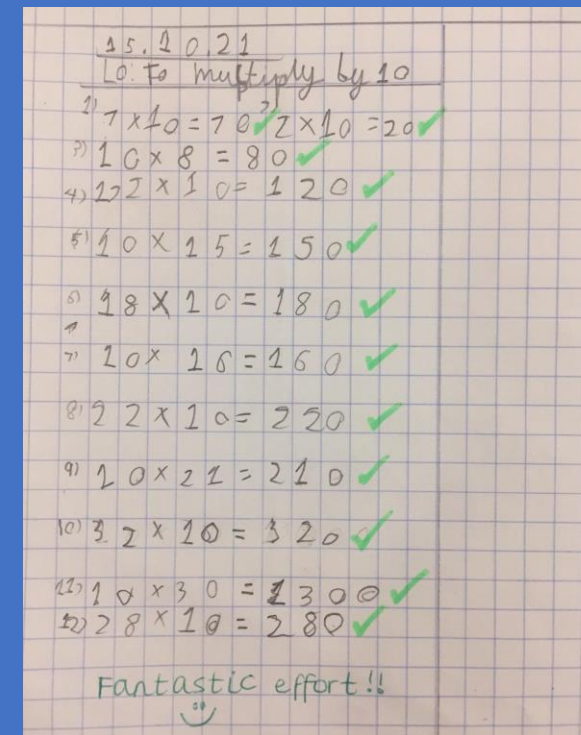 15.10.21
LO: To multiply by 10
1) 7 x 10 = 70 2) 2 x 10 = 20
3) 10 x 8 = 80
4) 12 x 10 = 120
5) 10 x 15 = 150
6) 18 x 10 = 180
7) 10 x 16 = 160
8) 22 x 10 = 220
9) 10 x 21 = 210
10) 32 x 10 = 320
11) 10 x 30 = 1300
12) 28 x 10 = 280
Fantastic effort!!